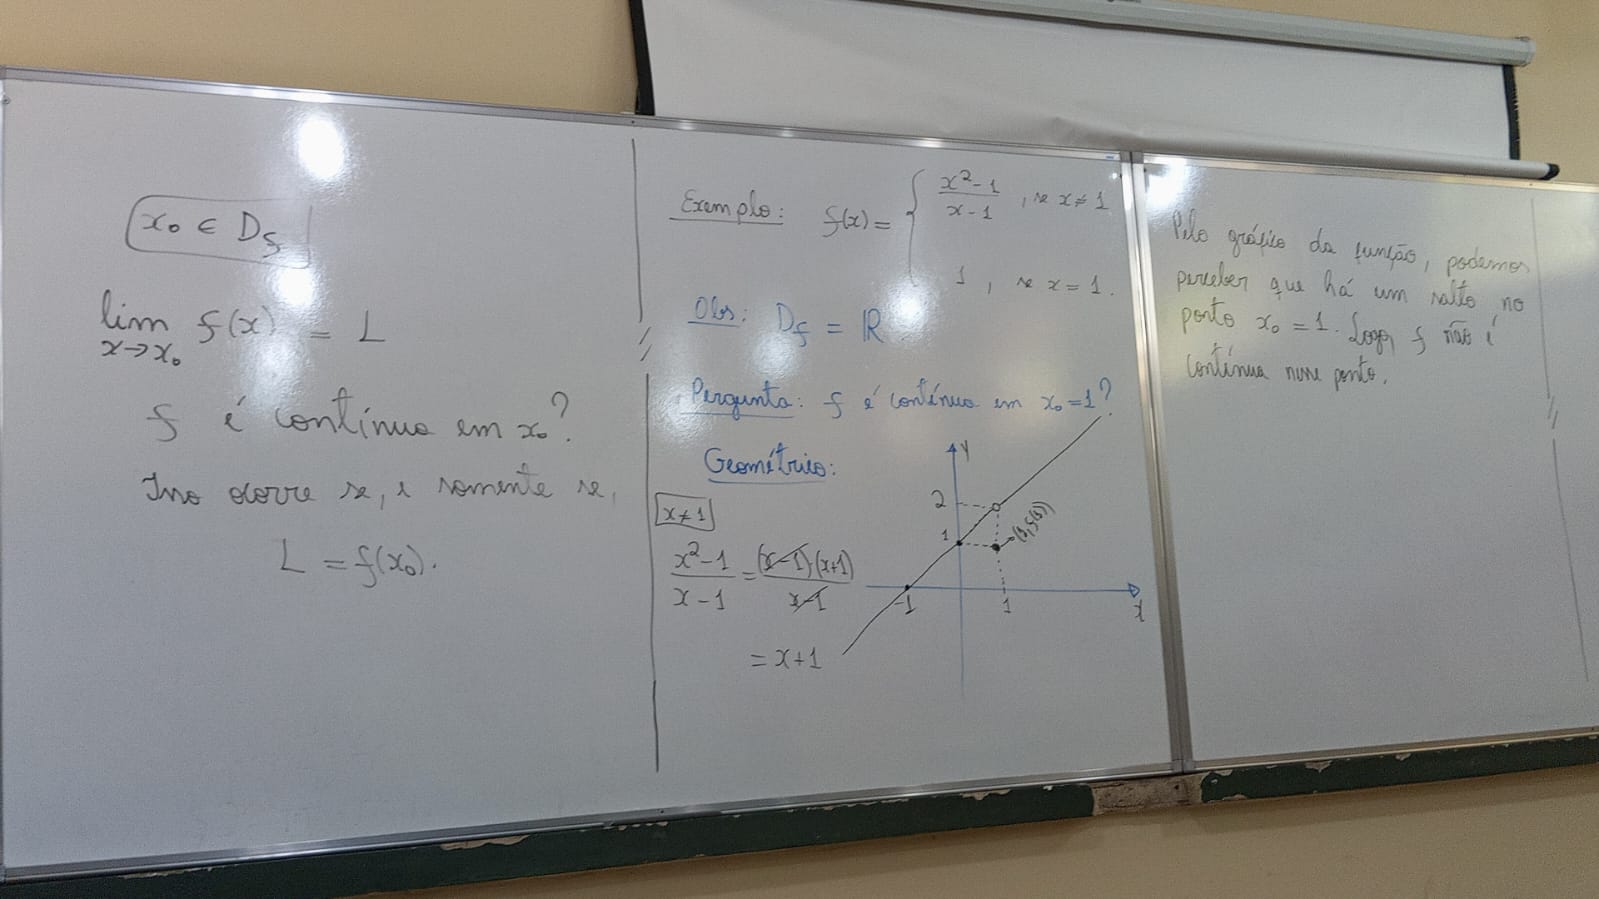 x₀ ∈ D_f
lim f(x) = L
x→x₀
f é contínua em x₀?
Isso ocorre se, e somente se,
L = f(x₀).
Exemplo: f(x) = { (x²-1)/(x-1), se x ≠ 1
1, se x = 1.
Obs: D_f = ℝ
Pergunta: f é contínua em x₀ = 1?
Geométrico:
x ≠ 1
(x²-1)/(x-1) = (x-1)·(x+1)/(x-1)
= x+1
y
2
1
(1, f(1))
-1
1
x
Pelo gráfico da função, podemos
perceber que há um salto no
ponto x₀ = 1. Logo, f não é
contínua nesse ponto.